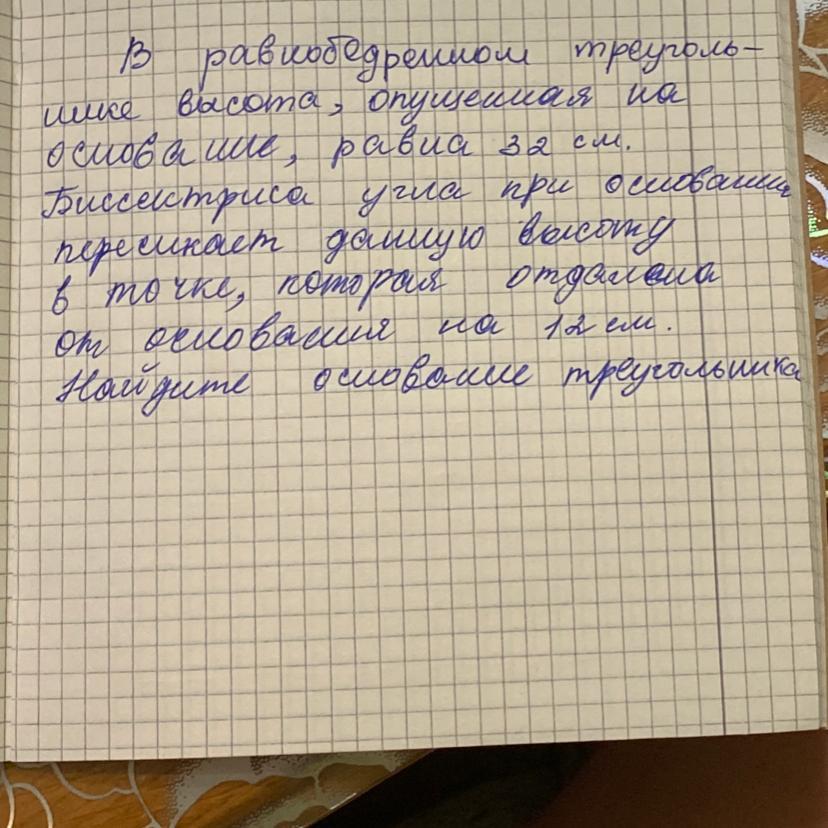 В равнобедренном треуголь-
нике высота, опущенная на
основание, равна 32 см.
Биссектриса угла при основании
пересекает данную высоту
в точке, которая отдалена
от основания на 12 см.
Найдите основание треугольника